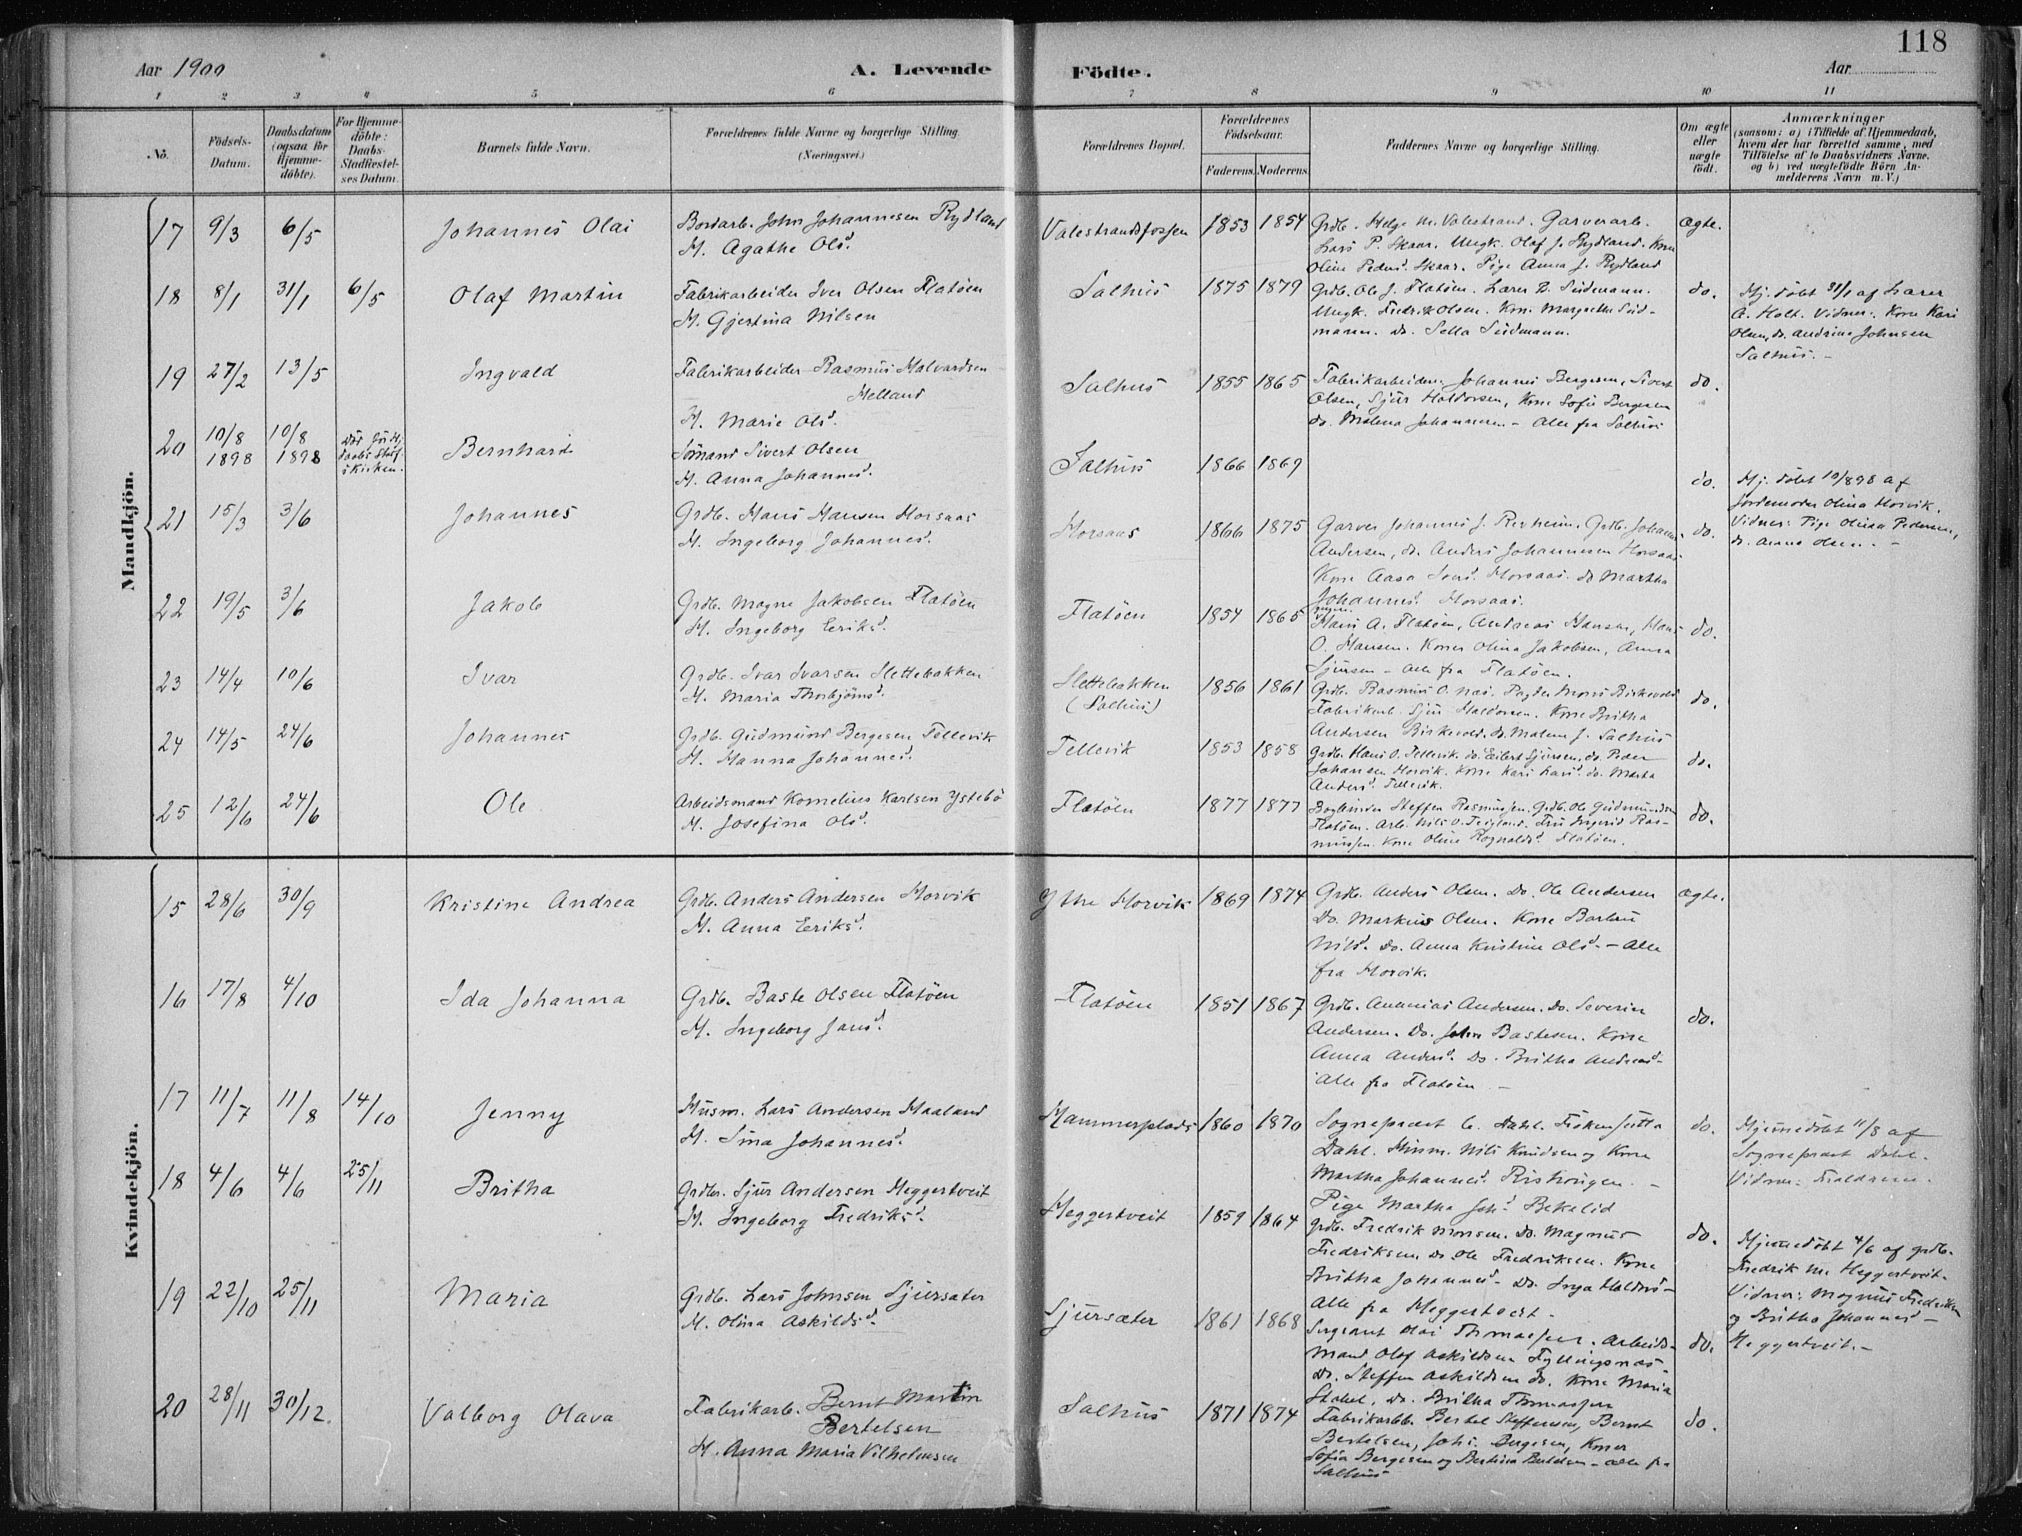 118
Aar 1900
A. Levende Födte.
Aar
1 2 3 4 5 6 7 8 9 10 11
No.
Födsels-Datum.
Daabsdatum (ogsaa for Hjemme-döbte).
For Hjemme-döbte: Daabs-Stadfæstel-ses Datum.
Barnets fulde Navn.
Forældrenes fulde Navne og borgerlige Stilling. (Næringsvei.)
Forældrenes Bopæl.
Forældrenes Födselsaar.
Faderens. Moderens.
Faddernes Navne og borgerlige Stilling.
Om ægte eller uægte födt.
Anmærkninger
(saasom: a) i Tilfælde af Hjemmedaab, hvem der har forrettet samme, med Tilföielse af to Daabsvidners Navne, og b) ved uægtefödte Börn Anmelderens Navn m. V.)
Mandkjön.
17 9/3 6/5 Johannes Olai
Bordarb. John Johannesen Rydland
H. Agathe Olsd.
Valestrandsfossen 1853 1854
Grdb. Helge M. Valestrand. Garverarb.
Lars P. Skaar. Ungk. Olaf J. Rydland. Kone
Oline Pedersd. Skaar. Pige Anna J. Rydland
ægte.
18 8/1 31/1 6/5 Olaf Martin
Fabrikarbeider Iver Olsen Flatöen
H. Gjertina Nilsen
Salhus 1875 1879
Grdb. Ole J. Flatöen. Lærer B. Sudmann.
Ungk. Fredrik Olsen. Kone Margrethe Sud-
mann. do. Sella Sudmann.
do.
Hj. döbt 31/1 af Lærer
A. Holt. Vidner: Kone Kari
Olsen, do. Andrine Johnsen
Salhus. -
19 27/2 13/5 Ingvald
Fabrikarbeider Rasmus Halvardsen
Helland
H. Marie Olsd.
Salhus 1855 1865
Fabrikarbeidere Johannes Bergesen, Sivert
Olsen, Sjur Haldorsen, Kone Sofie Bergesen
do. Malena Johannesen - Alle fra Salhus
do.
20 10/8 1898 10/8 1898
Bernhard
Sömand Sivert Olsen
H. Anna Johannesd.
Salhus 1866 1869
do.
Hj. döbt 10/8 98 af
Jordemoder Olina Horvik.
Vidner: Pige Olina Pedersen,
do. Anna Olsen. -
21 15/3 3/6 Johannes
Grdb. Hans Hansen Horsaas
H. Ingeborg Johannesd.
Horsaas 1866 1875
Garver Johannes J. Revheim. Grdb. Johannes
Andersen, do. Anders Johannesen Horsaas
Kone Aasa Iversd. Horsaas. do Martha
Johannesd. Horsaas.
do.
22 19/5 3/6 Jakob
Grdb. Magne Jakobsen Flatöen
H. Ingeborg Eriksd.
Flatöen 1854 1865
Hans A. Flatöen, Andreas Hansen, Hans
O. Hansen. Koner Olina Jakobsen, Anna
Sjursen - Alle fra Flatöen.
do.
23 14/4 10/6 Ivar
Grdb. Ivar Ivarsen Slettebakken
H. Maria Thorbjörnsd.
Slettebakken
(Salhus) 1856 1861
Grdb. Rasmus O. Næs. Pagter Mons Birkevold
Fabrikarb. Sjur Haldorsen. Kone Britha
Andersen Birkevold. do. Malene J. Salhus
do.
24 14/5 24/6 Johannes
Grdb. Gudmund Bergesen Tellevik
H. Hanna Johannesd.
Tellevik 1853 1858
Grdb. Hans O. Tellevik. do. Eilert Sjursen, do. Peder
Johansen Horvik. Kone Kari Larsd. do. Marta
Andersd. Tellevik.
do.
25 12/6 24/6 Ole
Arbeidsmand Kornelius Karlsen Ystebö
H. Josefina Olsd.
Flatöen 1877 1877
Bogbinder Steffen Rasmussen. Grdb. Ole Gudmundsen
Flatöen. Arb. Nils O. Teigland. Fru Ingerid Ras-
mussen. Kone Oline Rognaldsd. Flatöen.
do.
Kvindekjön.
15 28/6 30/9 Kristine Andrea
Grdb. Anders Andersen Horvik
H. Anna Eriksd.
Ytre Horvik 1869 1874
Grdb. Anders Olsen. Do. Ole Andersen
Do. Markus Olsen. Kone Barbru
Nilsd. Do. Anna Kristine Olsd. - Alle
fra Horvik.
ægte.
16 17/8 4/10 Ida Johanna
Grdb. Baste Olsen Flatöen
H. Ingeborg Jansd.
Flatöen 1851 1867
Grdb. Ananias Andersen. Do. Severin
Andersen. Do. John Bastesen. Kone
Anna Andersd. Do. Britha Andreasd. -
Alle fra Flatöen -
do.
17 11/7 11/8 14/10 Jenny
Husm. Lars Andersen Haaland
H. Sina Johannesd.
Hammersplads 1860 1870
Sogneprest C. Dahl. Fröken Jutta
Dahl. Husm. Nils Knudsen og Kone
Martha Johannesd. Risöringen. -
Pige Martha Johsd. Bekalid
do.
Hjemmedöbt 11/8 af
Sogneprest Dahl.
Vidner: Forældrene.
18 4/6 4/6 25/11 Britha
Grdbr. Sjur Andersen Heggertveit
H. Ingeborg Fredriksd.
Heggertveit 1859 1864
Grdb. Fredrik Monsen. Do. Magnus
Fredriksen do Ole Fredriksen. Kone
Britha Johannesd. Do. Inga Haldorsd. -
Alle fra Heggertveit -
do.
Hjemmedöbt 4/6 af grdb.
Fredrik M. Heggertveit.
Vidner: Magnus Fredriksen
og Britha Johannesd. -
Heggertveit. -
19 22/10 25/11 Maria
Grdb. Lars Johnsen Sjursæter
H. Olina Askildsd.
Sjursæter 1861 1868
Sergeant Olai Thomassen. Arbeids-
mand Olaf Askildsen Fyllingsnæs.
Do. Steffen Askildsen do. Kone Maria
do. Britha Thomassen
do.
20 28/11 30/12. Valborg Olava
Fabrikarb. Bernt Martin
Bertelsen
H. Anna Maria Vilhelmsen
Salhus 1871 1874
Fabrikarb. Bertel Steffensen, Bernt
Bertelsen, Johs. Bergesen, Koner
Sofia Bergesen og Bertina Bertelsen - alle fra
Salhus
do.